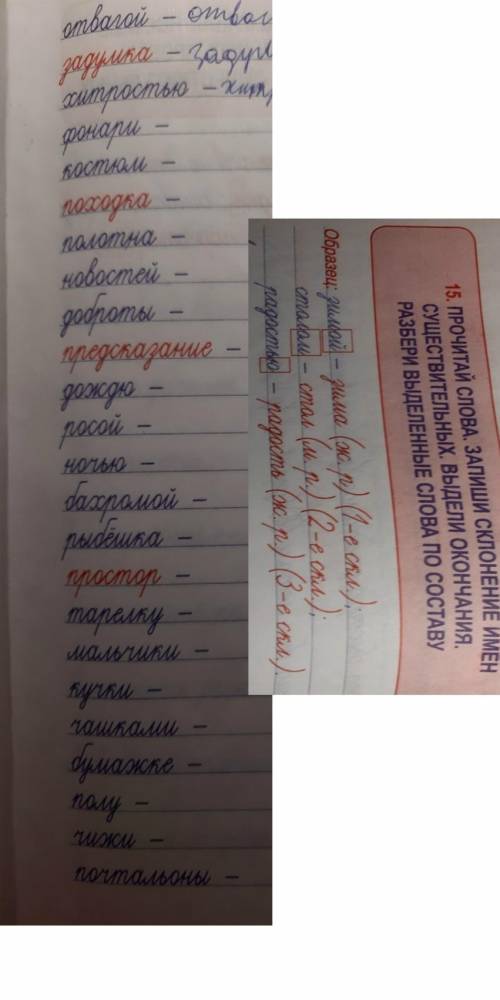 отвагой – отваг
задумка – задум
хитростью – хит
фонари –
костюм –
походка –
полотна –
новостей –
доброты –
предсказание –
дождю –
росой –
ночью –
бахромой –
рыбёшка –
простор –
тарелку –
мальчики –
кучки –
чашками –
бумажке –
полу –
чижи –
почтальоны –
15. ПРОЧИТАЙ СЛОВА. ЗАПИШИ СКЛОНЕНИЕ ИМЕН
СУЩЕСТВИТЕЛЬНЫХ. ВЫДЕЛИ ОКОНЧАНИЯ.
РАЗБЕРИ ВЫДЕЛЕННЫЕ СЛОВА ПО СОСТАВУ
Образец: зимой – зима (ж. р.) (1-е скл.);
столом – стол (м. р.) (2-е скл.);
радостью – радость (ж. р.) (3-е скл.).